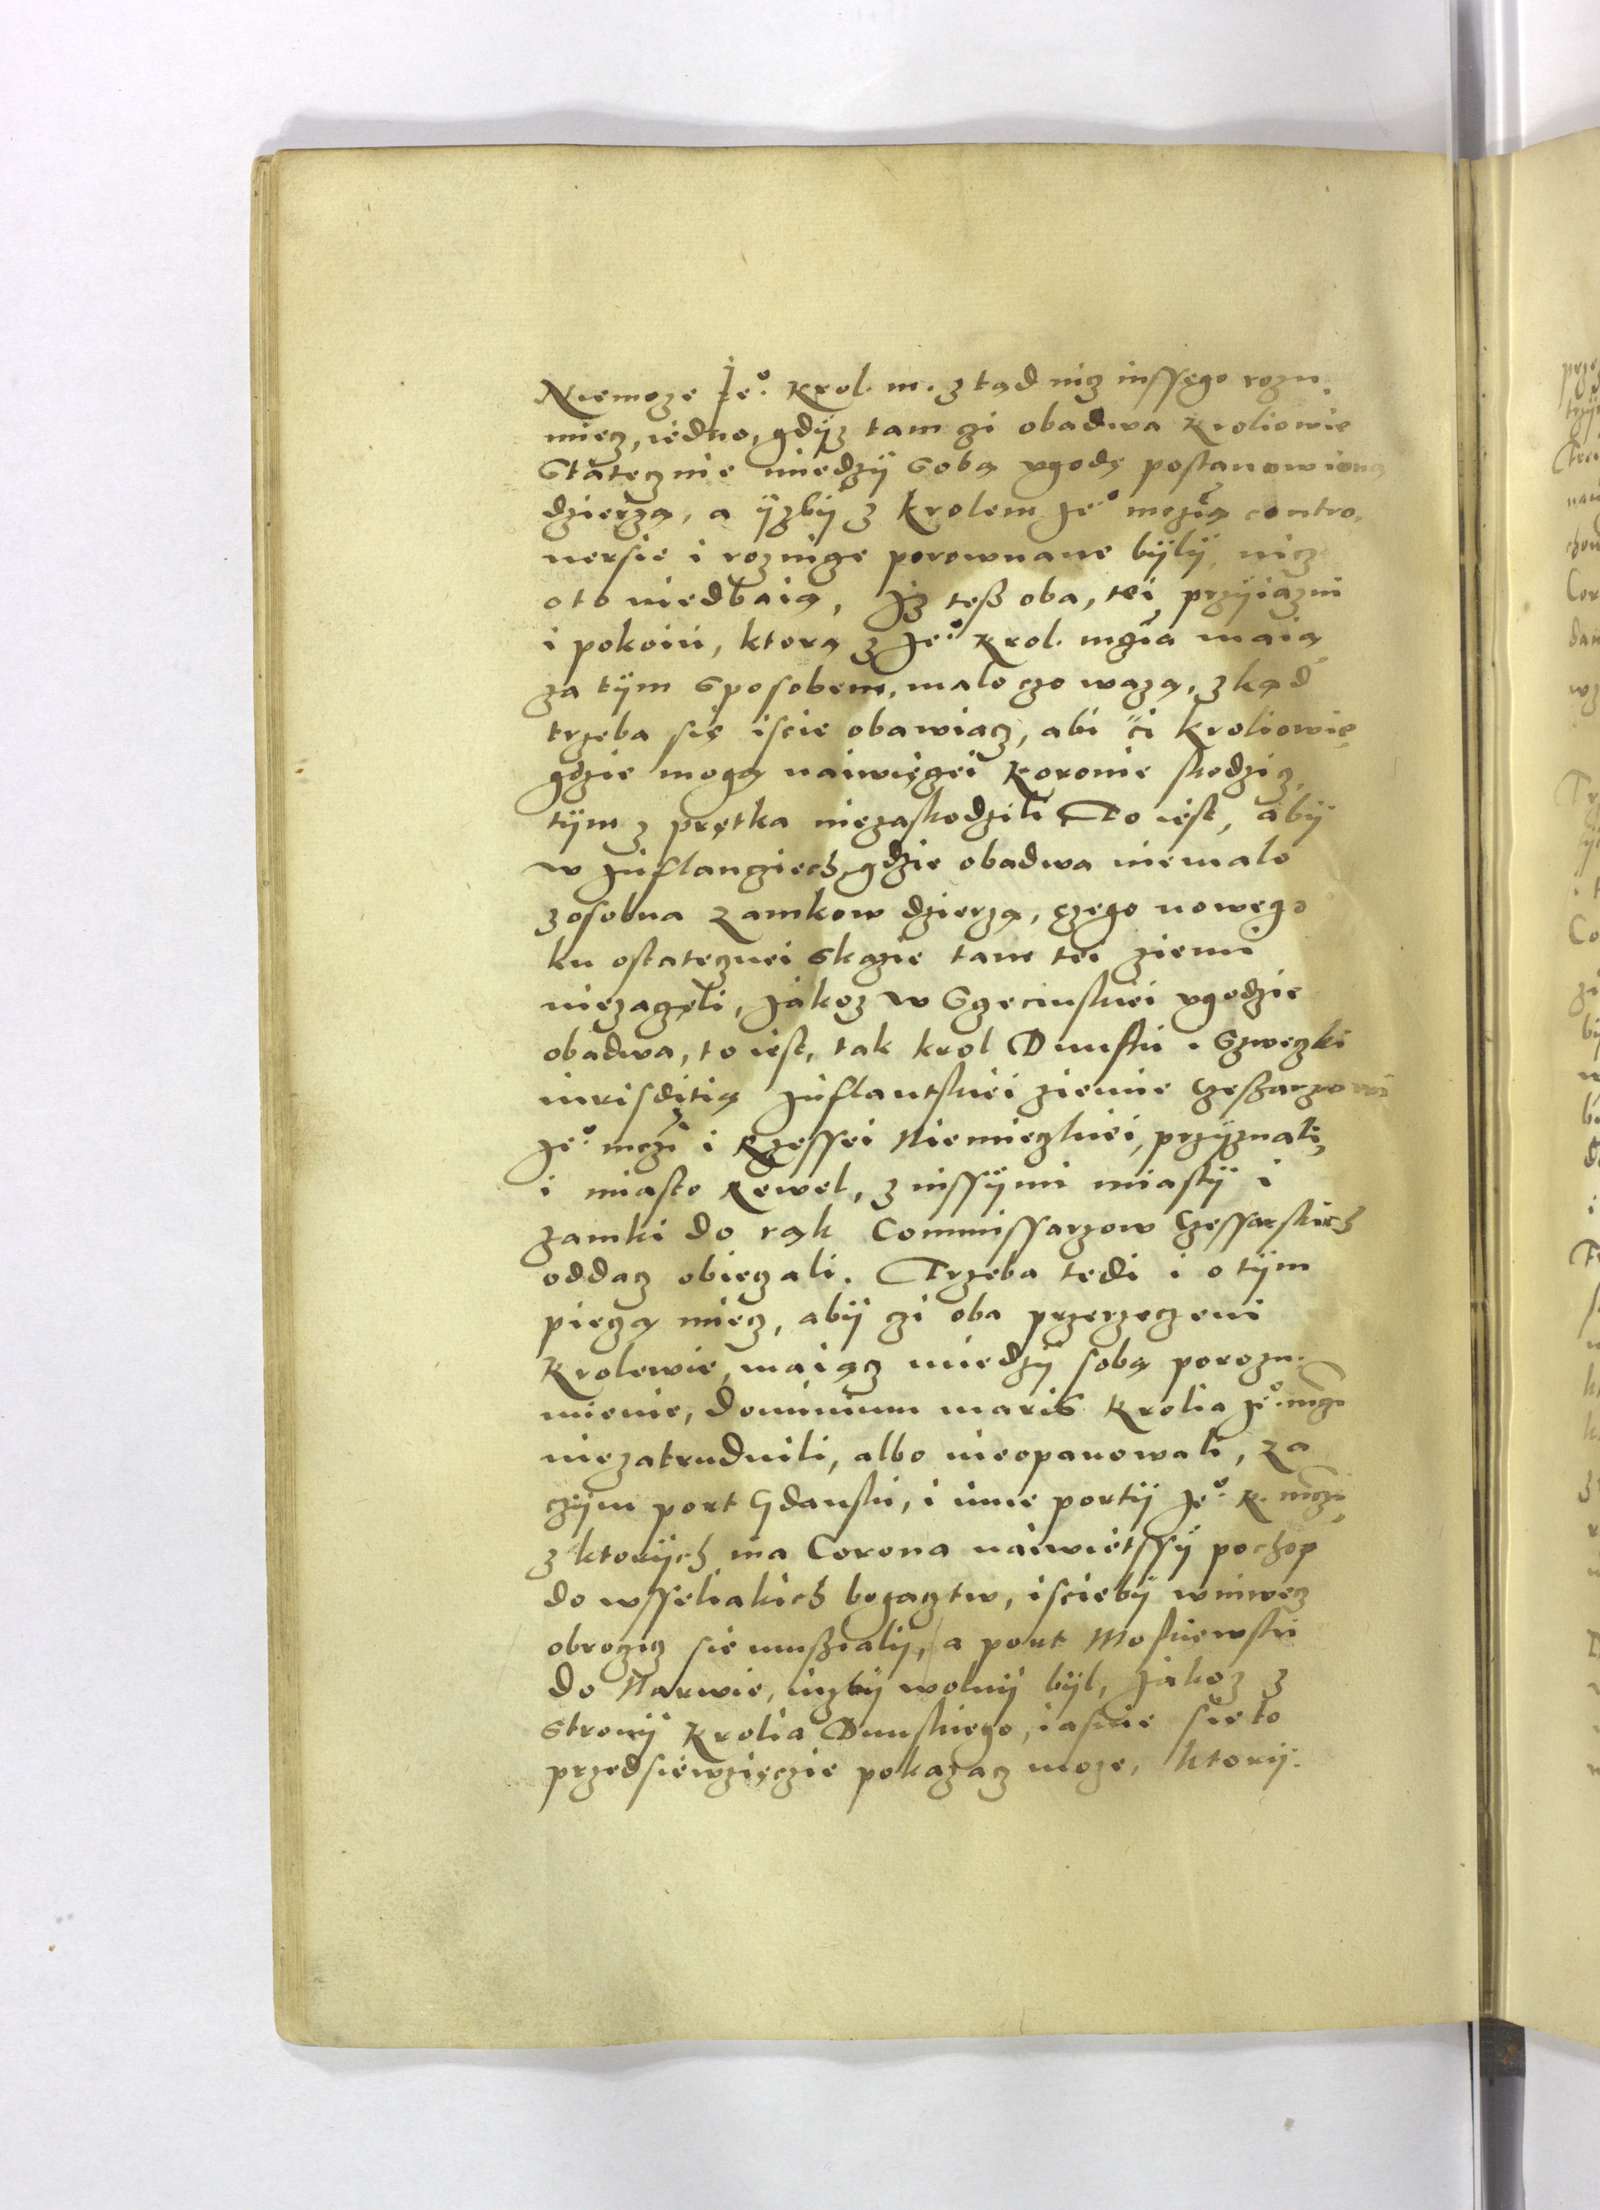 Niemoze Je⁰. Krol. m. ztąd nicz inssego rozu.
miecz, iedno, gdÿz tam czi obadwa Kroliowie
Statecznie miedzÿ Sobą vgodę postanowioną
dzierzą, a ÿzbÿ z Krolem Je⁰ mczią contro,
uersie i roznicze porownane bÿlÿ, nicz
oto niedbaią, Jż teß oba, tei prziiazni
i pokoiu, ktorą z Je⁰ Krol. mczia maią
za tÿm Sposobem, malo czo wazą, zkąd
trzeba się iscie obawiacz, abi ci Kroliowie
gdzie mogą naiwięczei Koronie skodzicz,
tÿm z prętka niezaskodzili To iest, abÿ
w Juflanciech, gdzie obadwa niemalo
zosobna Zamkow dzierzą, czego nowego
ku ostatecznei Skazie tam tei ziemi
niezaczęli, Jakoz w Sczecinskiei vgodzie
obadwa, to iest, tak krol Dunski i Szweczki
iurisditią Juflantskiei ziemie Czeßarzowi
Je⁰. mczi i Rzessei Niemieczkiei, przÿznali,
i miasto Rewel, z inssÿmi miastÿ i
zamki do rąk Commissarzow Czessarskich
oddacz obieczali. Trzeba tedi i o tÿm
pieczą miecz, abÿ czi oba przerzeczeni
Krolewie, maiącz miedzÿ sobą porozu.
mienie, dominium maris Krolia Je⁰. mczi
niezatrudnili, albo nieopanowali, za
czÿm port Gdanski, i inne portÿ Je⁰. K. mczi,
z ktorÿch ma Corona naiwietssÿ pochop
do wsseliakich bogacztw, isciebÿ wniwecz
obroczicz sie mußialÿ, a port Moskiewski
do Narwie, iuzbÿ wolnÿ bÿl, Jakoz z
Stronÿ Krolia Dunskiego, iasnie sie to
przedsiewzięczie pokazacz moze, ktorÿ.